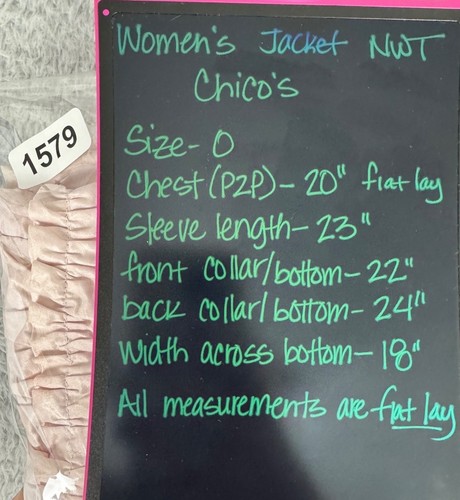 Women's Jacket NWT
Chico's
1579
Size- 0
Chest (P2P)- 20" flat lay
Sleeve length- 23"
front collar/bottom- 22"
back collar/bottom- 24"
Width across bottom- 18"
All measurements are flat lay